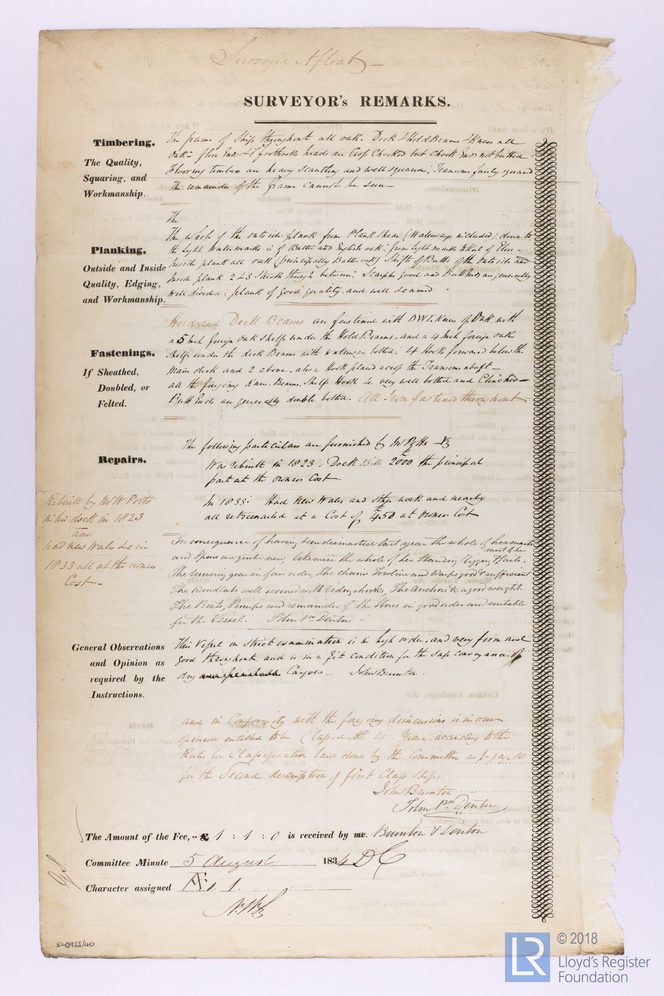 Surveyed Afloat
SURVEYOR's REMARKS.
Timbering.
The Quality,
Squaring, and
Workmanship.
The frame of Ship throughout all oak. Deck & Hold Beams & Knees all
oak heads are Cross Chocked but Chock Ends not butted
Flooring timbers are heavy Scantling and well squared; Transoms fairly squared
the remainder of the frame cannot be seen
The
Planking.
Outside and Inside
Quality, Edging,
and Workmanship.
The whole of the outside plank from Plank Shear (Waterways included) down to
the light Watermarks is of and English oak; from light mark to Keel of Elm
Inside plank all oak (principally ) Shifts of Butts of the outside and
Inside plank 2 & 3 between; good and are generally
well divided; plank of good quality and well seamed
Fastenings.
If Sheathed,
Doubled, or
Felted.
Hold and Deck Beams are fastened with Knees of Oak with
a 5 Inch foreign oak Shelf under the Hold Beams, and a 4 Inch foreign oak
Shelf under the deck Beams with waterway bolted. 4 Hooks forward below the
Main deck and 2 above, also a Hook placed across the Transoms abaft
all the foregoing Knees, Beams, Shelf Hooks &c very well bolted and Clinched
Butt Ends are generally double bolted. All Iron fastened throughout
Repairs.
The following particulars are furnished by Mr
Was rebuilt in 1823. Dock Bill 2000 the principal
part at the owners Cost
In 1833. Had New Wales and Ship work and nearly
all retreenailed at a Cost of £450 at owners Cost
Rebuilt by Mr W Potts
in his dock in 1823
and
had new Wales &c in
1833 all at the owners
Cost
In consequence of having been dismasted last year the whole of her masts
and Spars are quite new, likewise the whole of her Standing rigging & part of her Sails.
The running gear in fair order, the chains Towline and Warps good & sufficient
The Windlass well secured with , The Anchors &c a good weight
The Boats, Pumps and remainder of the Stores in good order and suitable
for the Vessel. John Denton
General Observations
and Opinion as
required by the
Instructions.
This Vessel on Strict examination is in high order, and very firm and
good throughout and is in a fit condition for the safe conveyance of
dry Cargoes. John Bunton
and in Conformity with the foregoing dimensions is in our
opinion entitled to be Classed A 4 Years, according to the
Rules for Classification laid down by the Committee as p page 10
for the Second description of first Class Ships
John Bunton
John Denton
The Amount of the Fee, £ 1 : 1 : 0 is received by me. Bunton & Denton
Committee Minute 5 August 1834
Character assigned Æ 1
© 2018
LR
Lloyd's Register
Foundation